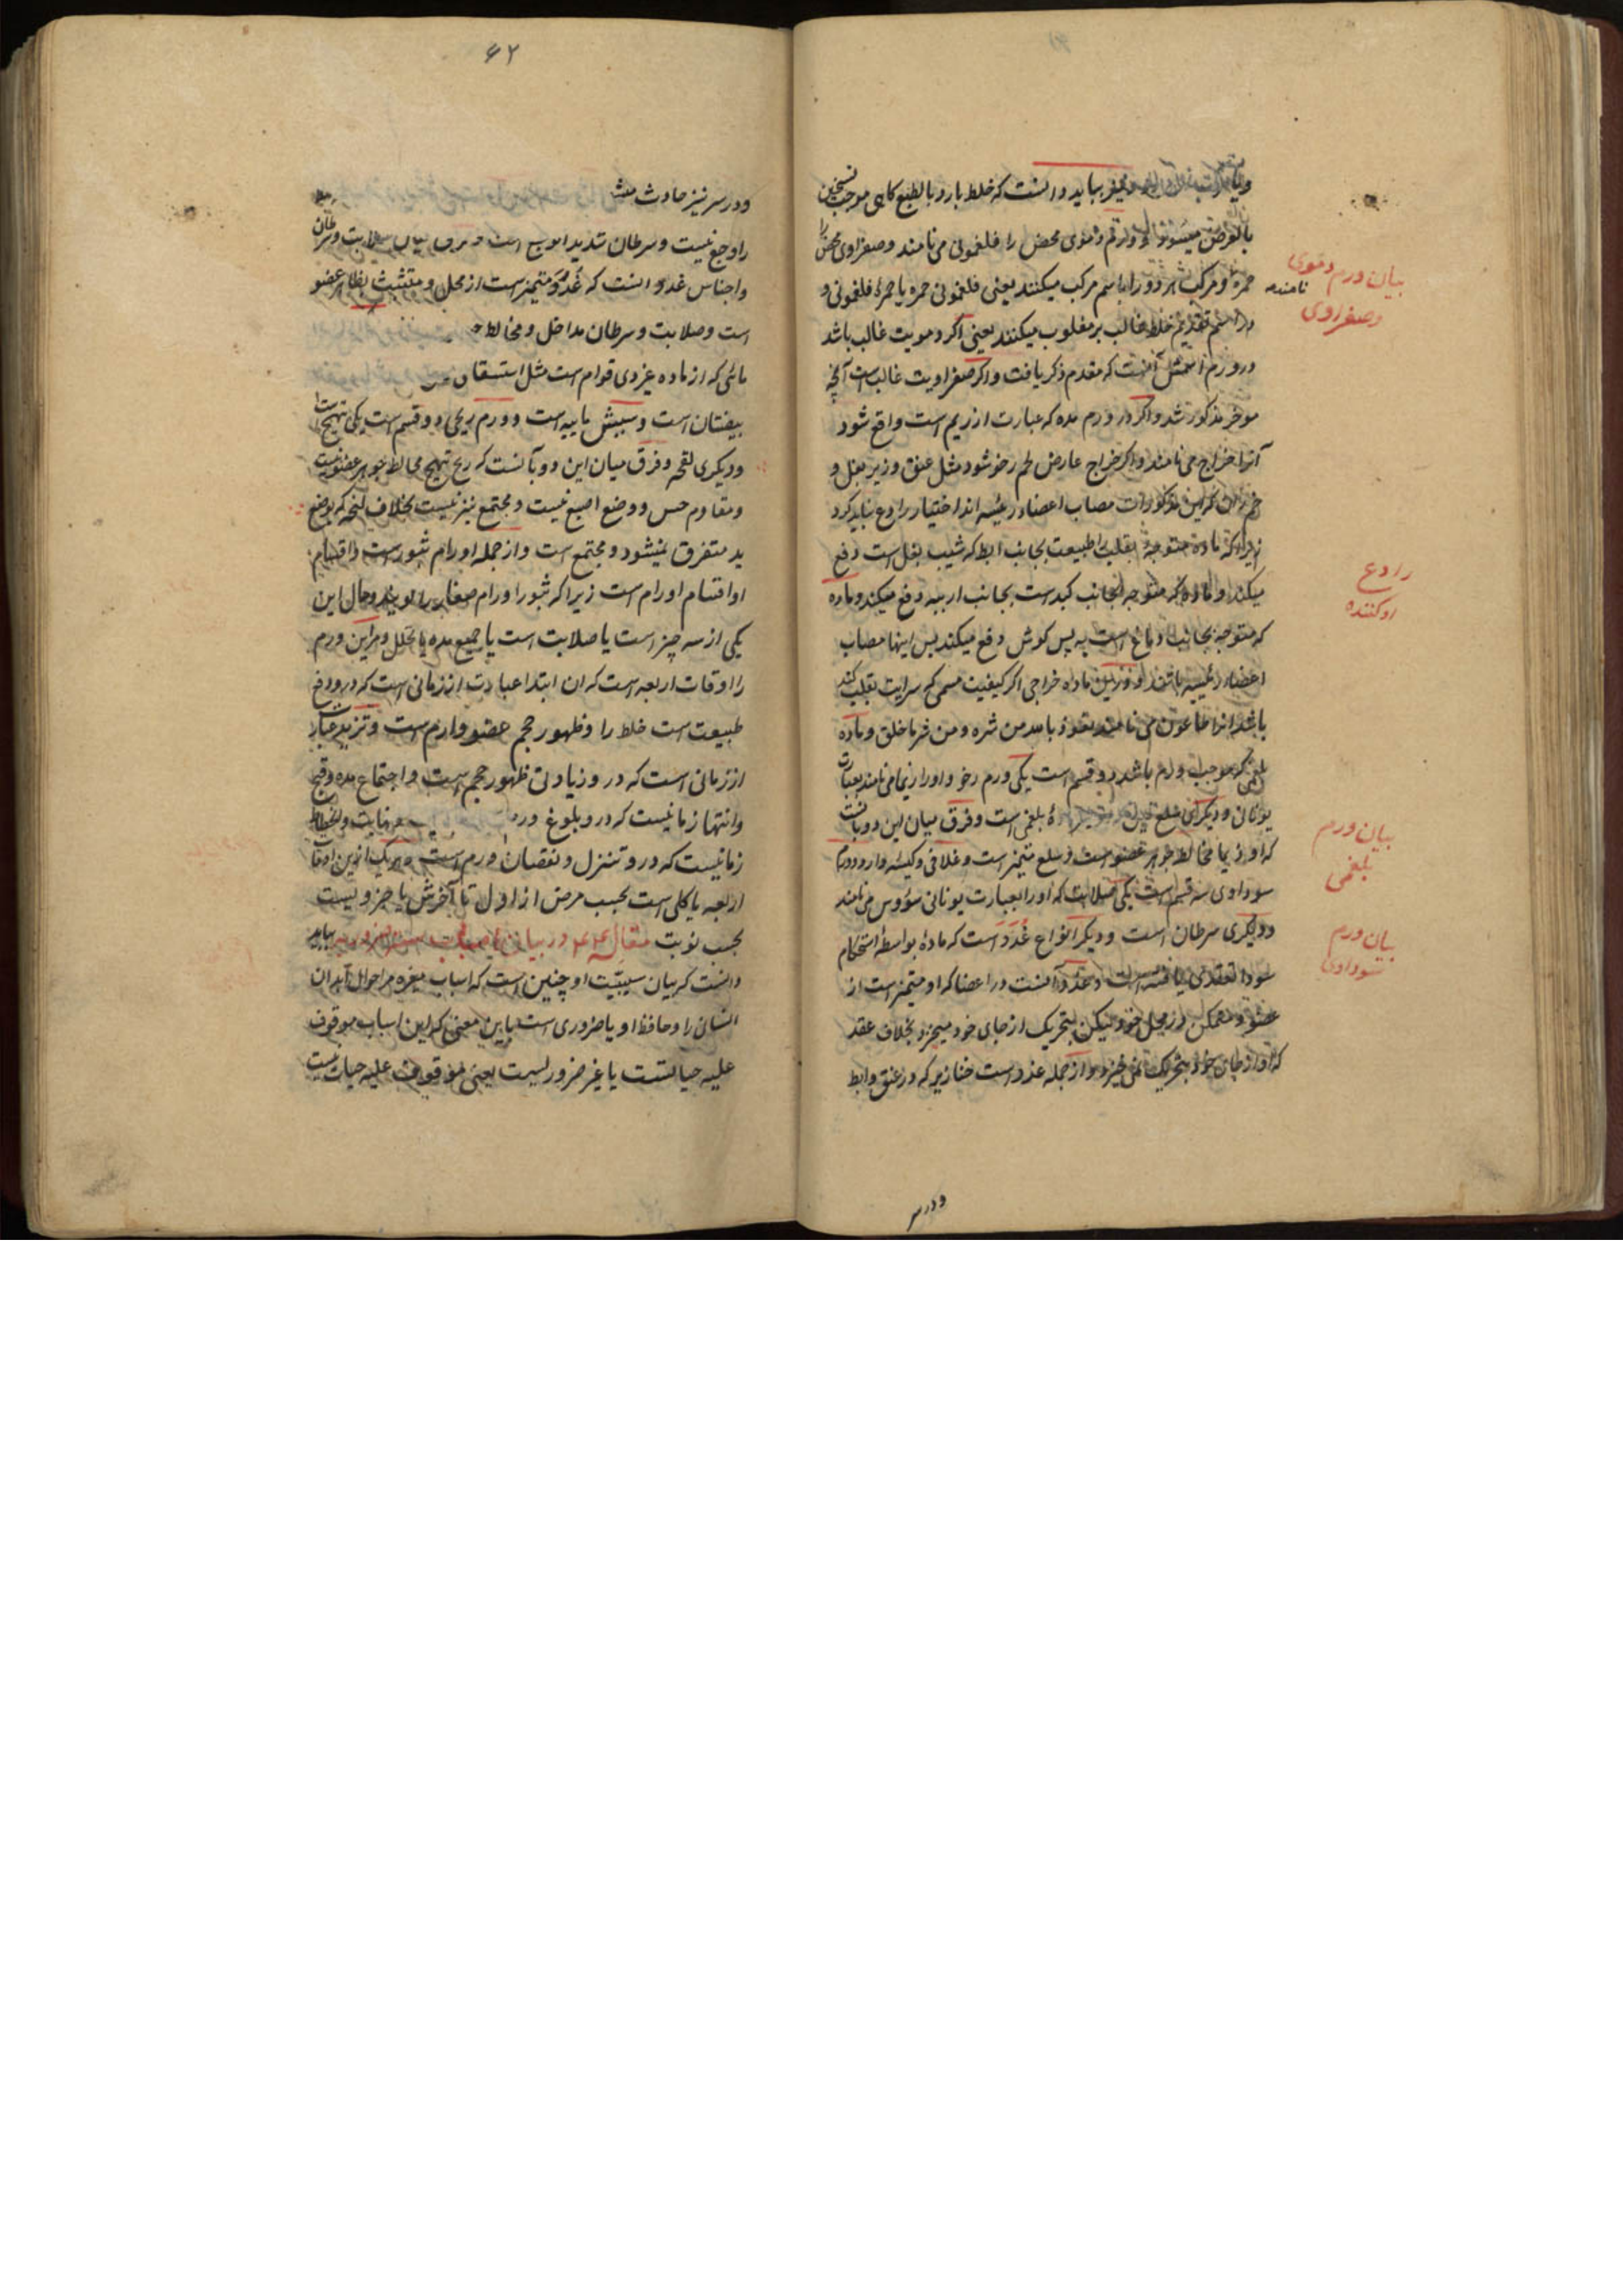 بباید دانست که خلط بارد بالطبع کاهی موجب تسخین
بالعرض میشود و ورم دموی محض را فلغمونی می نامند و صفراوی محض را
حمره و مرکب هر دو را باسم مرکب میکنند یعنی فلغمونی حمره یا حمرهٔ فلغمونی و
در اسم تقدیم خلط غالب بر مغلوب میکنند یعنی اکر دمویت غالب باشد
در ورم اسمش آنست که مقدم ذکر یافت و اکر صفراویت غالب است آنچه
موخر مذکور شد و اکر در ورم مده که عبارت از ریم است واقع شود
آنرا خراج می نامند و اکر خراج عارض لحم رخو شود مثل عنق و زیر بغل و
این مذکورات مصاب اعضاء رئیسه اند اختیار رادع نباید کرد
زیرا که ماده متوجه بقلب را طبیعت بجانب ابط که شیب بغل است دفع
میکند و ماده که متوجه بجانب کبد است بجانب اربیه دفع میکند و ماده
که متوجه بجانب دماغ است به پس کوش دفع میکند پس اینها مصاب
اعضاء رئیسه باشند و ماده خراجی اکر کیفیت سمی که سرایت بقلب کند
باشد انرا طاعون می نامند نعوذ بالله من شره و من شر ما خلق و ماده
بلغمی که موجب ورم باشد دو قسم است یکی ورم رخو و اورا اوذیما می نامند بعبارت
یونانی و دیکری سلع بلغمی است و فرق میان این دو بآنست
که اوذیما مخالط جوهر عضو است و سلع متمیز است و غلافی و کیسه دارد و ورم
سوداوی سه قسم است یکی صلابت که اورا بعبارت یونانی سقیروس می نامند
و دیکری سرطان است و دیکر انواع غدد است که ماده بواسطه استحکام
سودا تعقدی یافته است و غدد آنست در اعضا که او متمیز است از
عضو و متمکن در محل خود لیکن بتحریک از جای خود میخیزد بخلاف عقد
که او از جای خود بتحریک نمی خیزد و از جمله غدد است خنازیر که در عنق و ابط
ودرسر
بیان ورم دموی
نامنده
و صفراوی
رادع
رد کننده
بیان ورم
بلغمی
بیان ورم
سوداوی
۶۲
و در سر نیز حادث میشود
را وجع نیست و سرطان شدید الوجع است و فرق میان صلابت و سرطان
و اجناس غدد انست که غدد متمیز است از محل و متشبث بظاهر عضو
است و صلابت و سرطان مداخل و مخالط
مائی که از ماده غیر ذی قوام است مثل استسقا
بیضتان است و سببش مائیه است و ورم ریحی دو قسم است یکی تهیج است
و دیکری نفخه و فرق میان این دو بآنست که ریح تهیج مخالط جوهر عضو نیست
و مقاوم حس و وضع اصبع نیست و مجتمع نیز نیست بخلاف نفخه که بوضع
ید متفرق نمیشود و مجتمع است و از جمله اورام بثور است و اقسام
او اقسام اورام است زیرا که بثور اورام صغار را کویند و حال این
یکی از سه چیز است یا صلابت است یا جمع مده یا تحلل و مر این ورم
را اوقات اربعه است که ان ابتدا عبارت از زمانی است که در و دفع
طبیعت است خلط را و ظهور حجم عضو وارم است و تزید عبارت
از زمانی است که در و زیادتی ظهور حجم است و اجتماع مده و قیح
و انتها زمانیست که در و بلوغ ورم نهایت و انحطاط
زمانیست که در و تنزل و نقصان ورم است و هر یک از این اوقات
اربعه یا کلی است بحسب مرض از اول تا آخرش یا جزویست
بحسب نوبت مقاله در بیان اسباب سته ضروریه بباید
دانست که بیان سببیّت او چنین است که اسباب مغیره مر احوال ابدان
انسان را و حافظ او یا ضروری است باین معنی که این اسباب موقوف
علیه حیاتست یا غیر ضروریست یعنی موقوف علیه حیات نیست